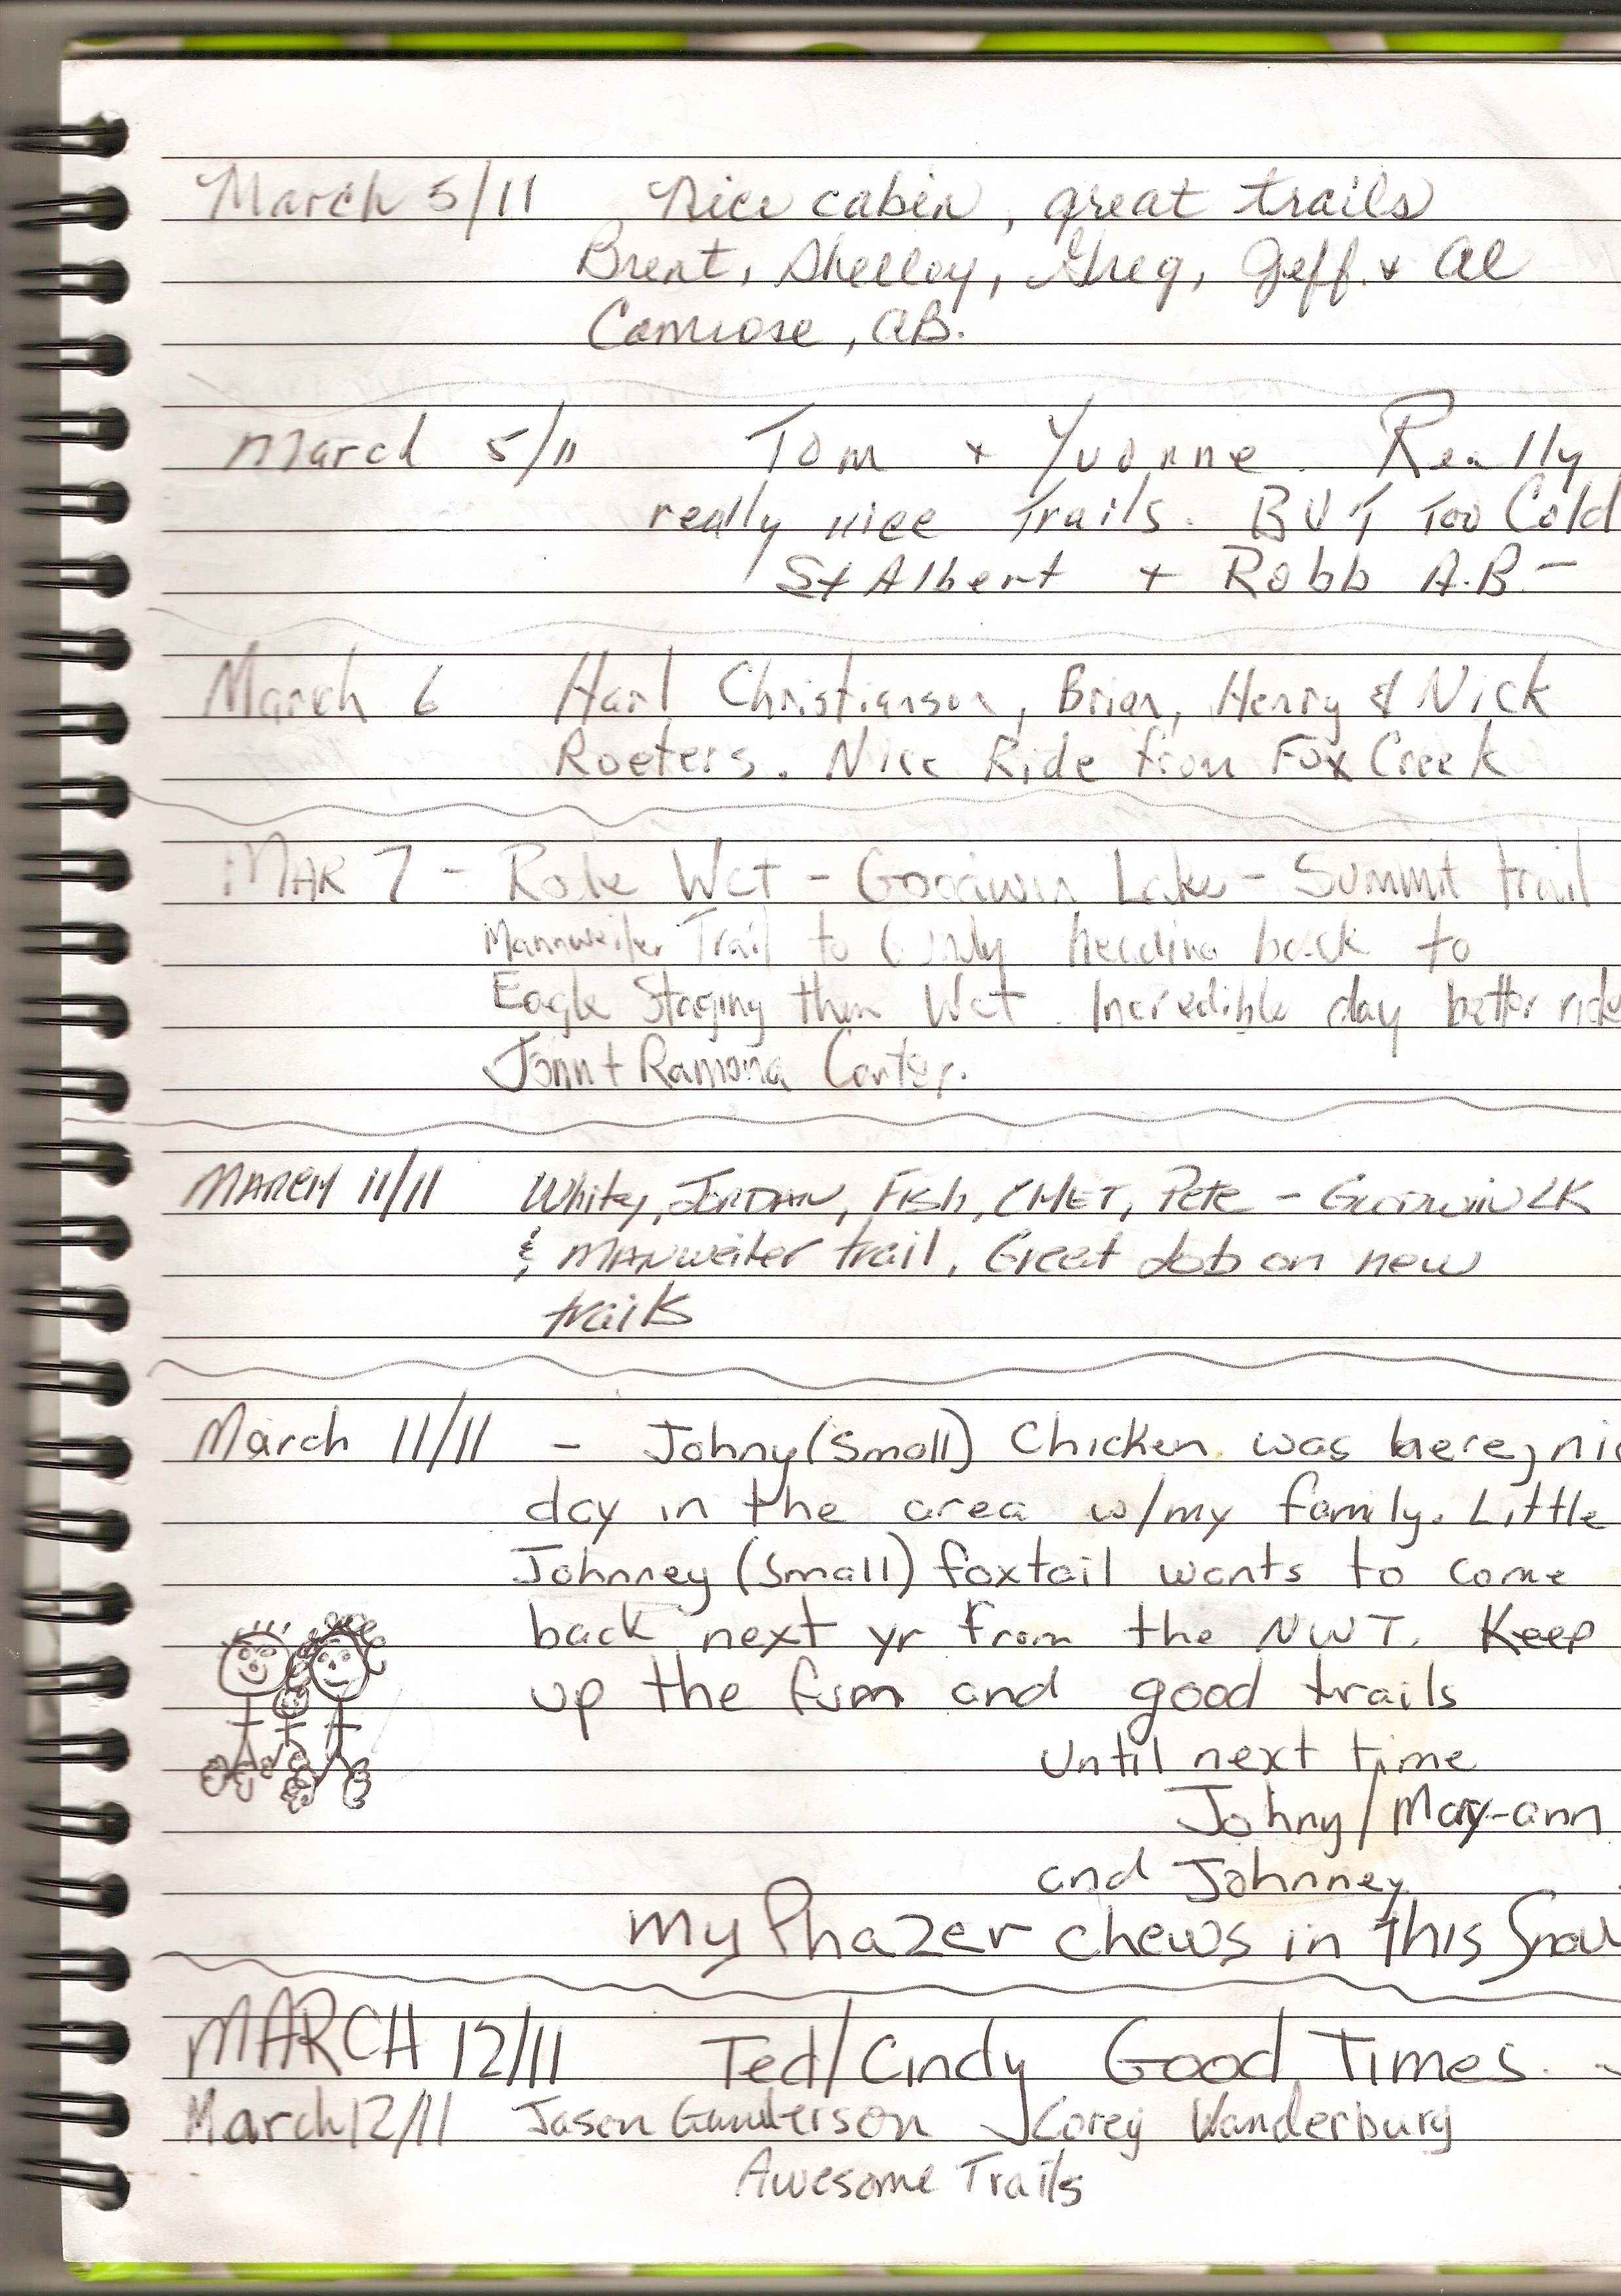 March 5/11 Nice cabin, great trails
Brent, Shelley, Greg, Geff & Al
Camrose, AB.
March 5/11 Tom + Yvonne. Really
really nice Trails. BUT Too Cold
St Albert + Robb A.B -
March 6 Harl Christianson, Brian, Henry & Nick
Roeters. Nice Ride from Fox Creek
MAR 7 - Rode Wct - Goodwin Lake - Summit trail
Mannweiler Trail to heading back to
Eagle Staging then Wct. Incredible day better ride
John + Ramona Carter.
MARCH 11/11 Whitey, JORDAN, Fish, CHET, Pete - GOODWIN LK
& MANweiler trail, Great Job on new
trails
March 11/11 - Johny (Small) Chicken was here, nic
day in the area w/my family. Little
Johnney (Small) foxtail wants to come
back next yr from the NWT. Keep
up the fum and good trails
Until next time
Johny/Mary-ann
and Johnney
my Phazer chews in this Snow
MARCH 12/11 Ted/Cindy Good Times.
March 12/11 Jason Gunderson Corey Vanderburg
Awesome Trails